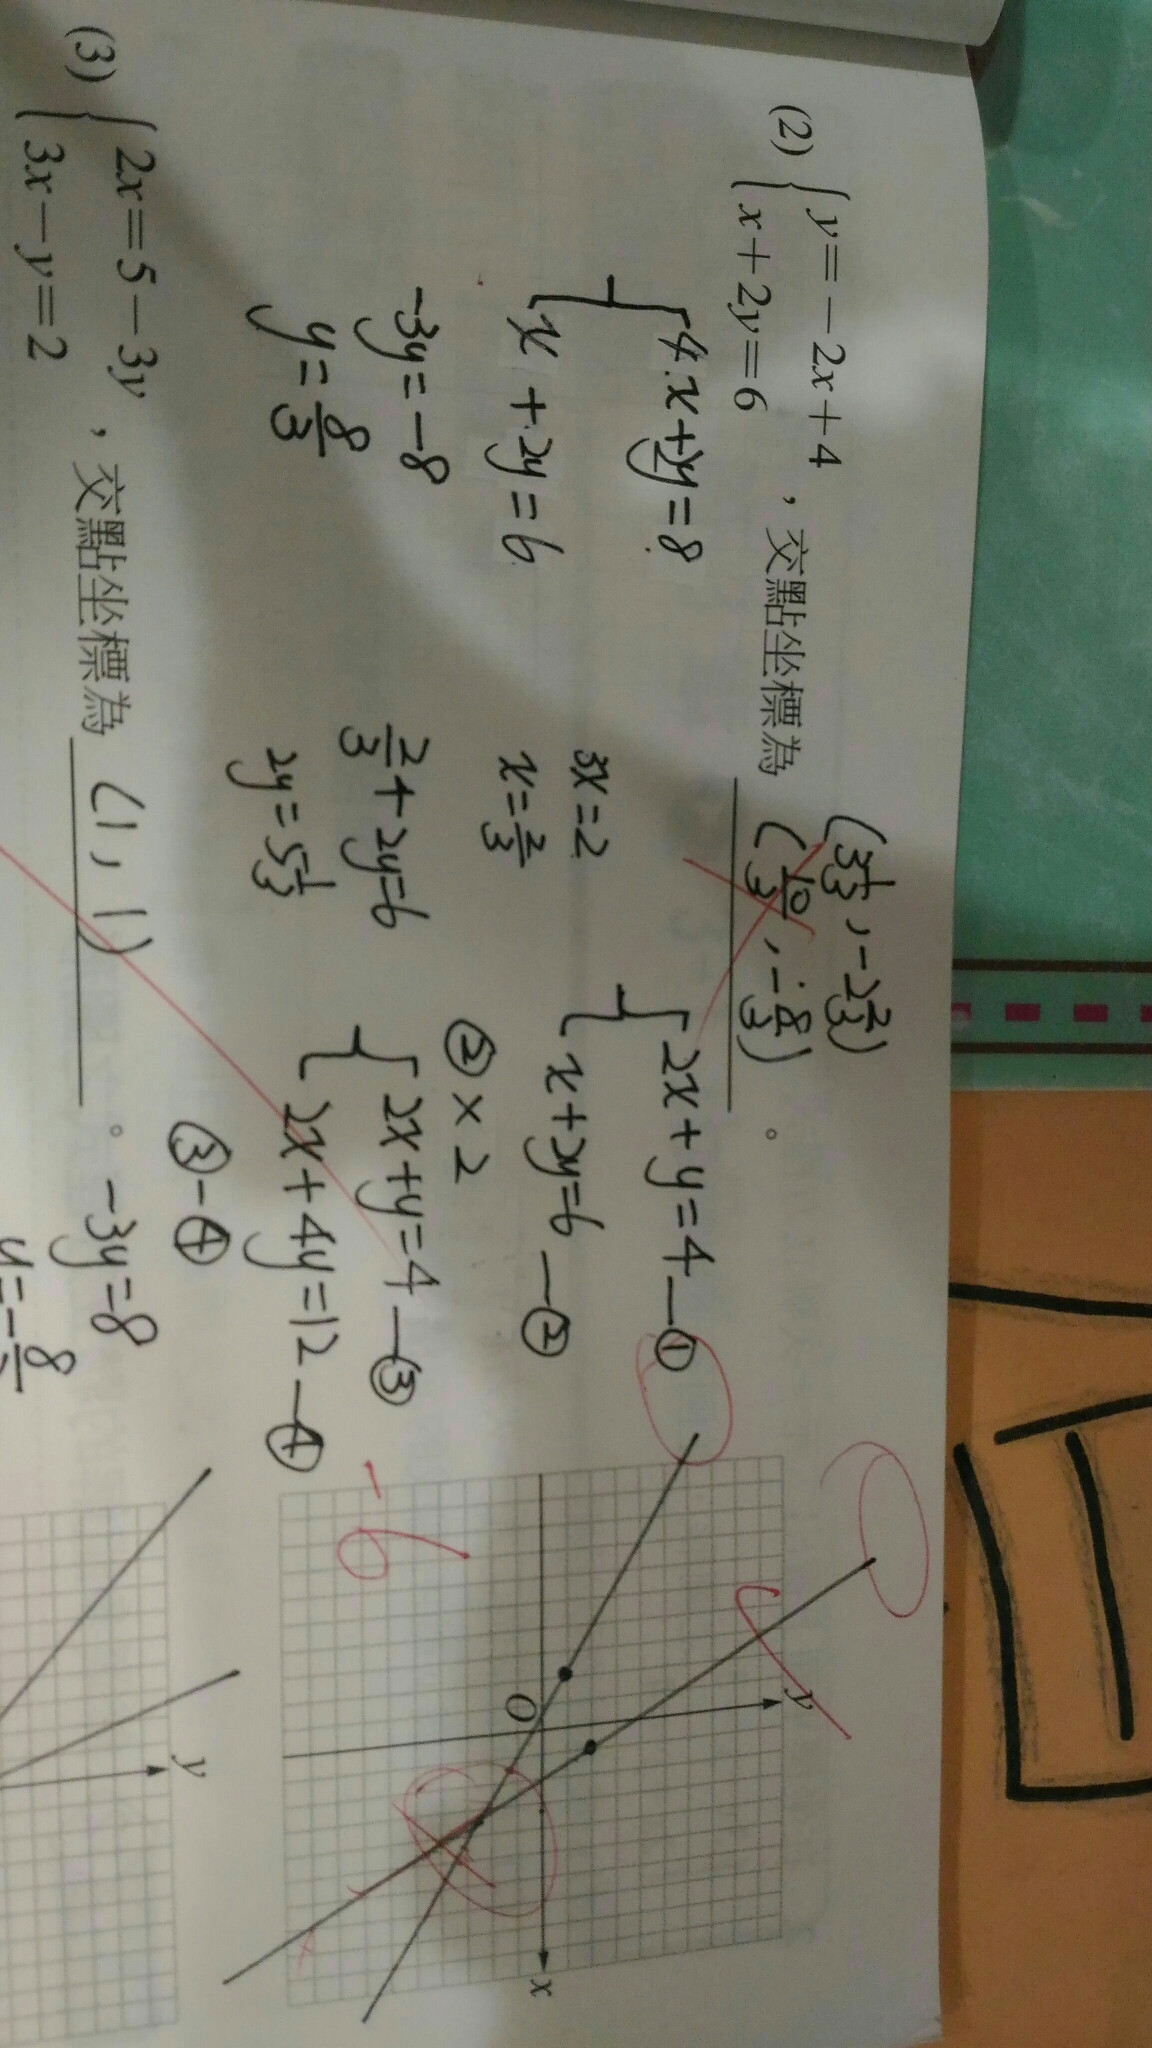 (2) { y=-2x+4
x+2y=6 , 交點坐標為 (10/3, -8/3) 。
(3 1/3, -2 2/3)
{ 4x+2y=8
x+2y=6
-3y=-8
y=8/3
3x=2
x=2/3
2/3+2y=6
2y=5 1/3
{ 2x+y=4 —①
x+2y=6 —②
②×2
{ 2x+y=4 —③
2x+4y=12 —④
③-④
-3y=8
y=-8
y
O
x
-6
(3) { 2x=5-3y
3x-y=2 , 交點坐標為 (1, 1) 。
y